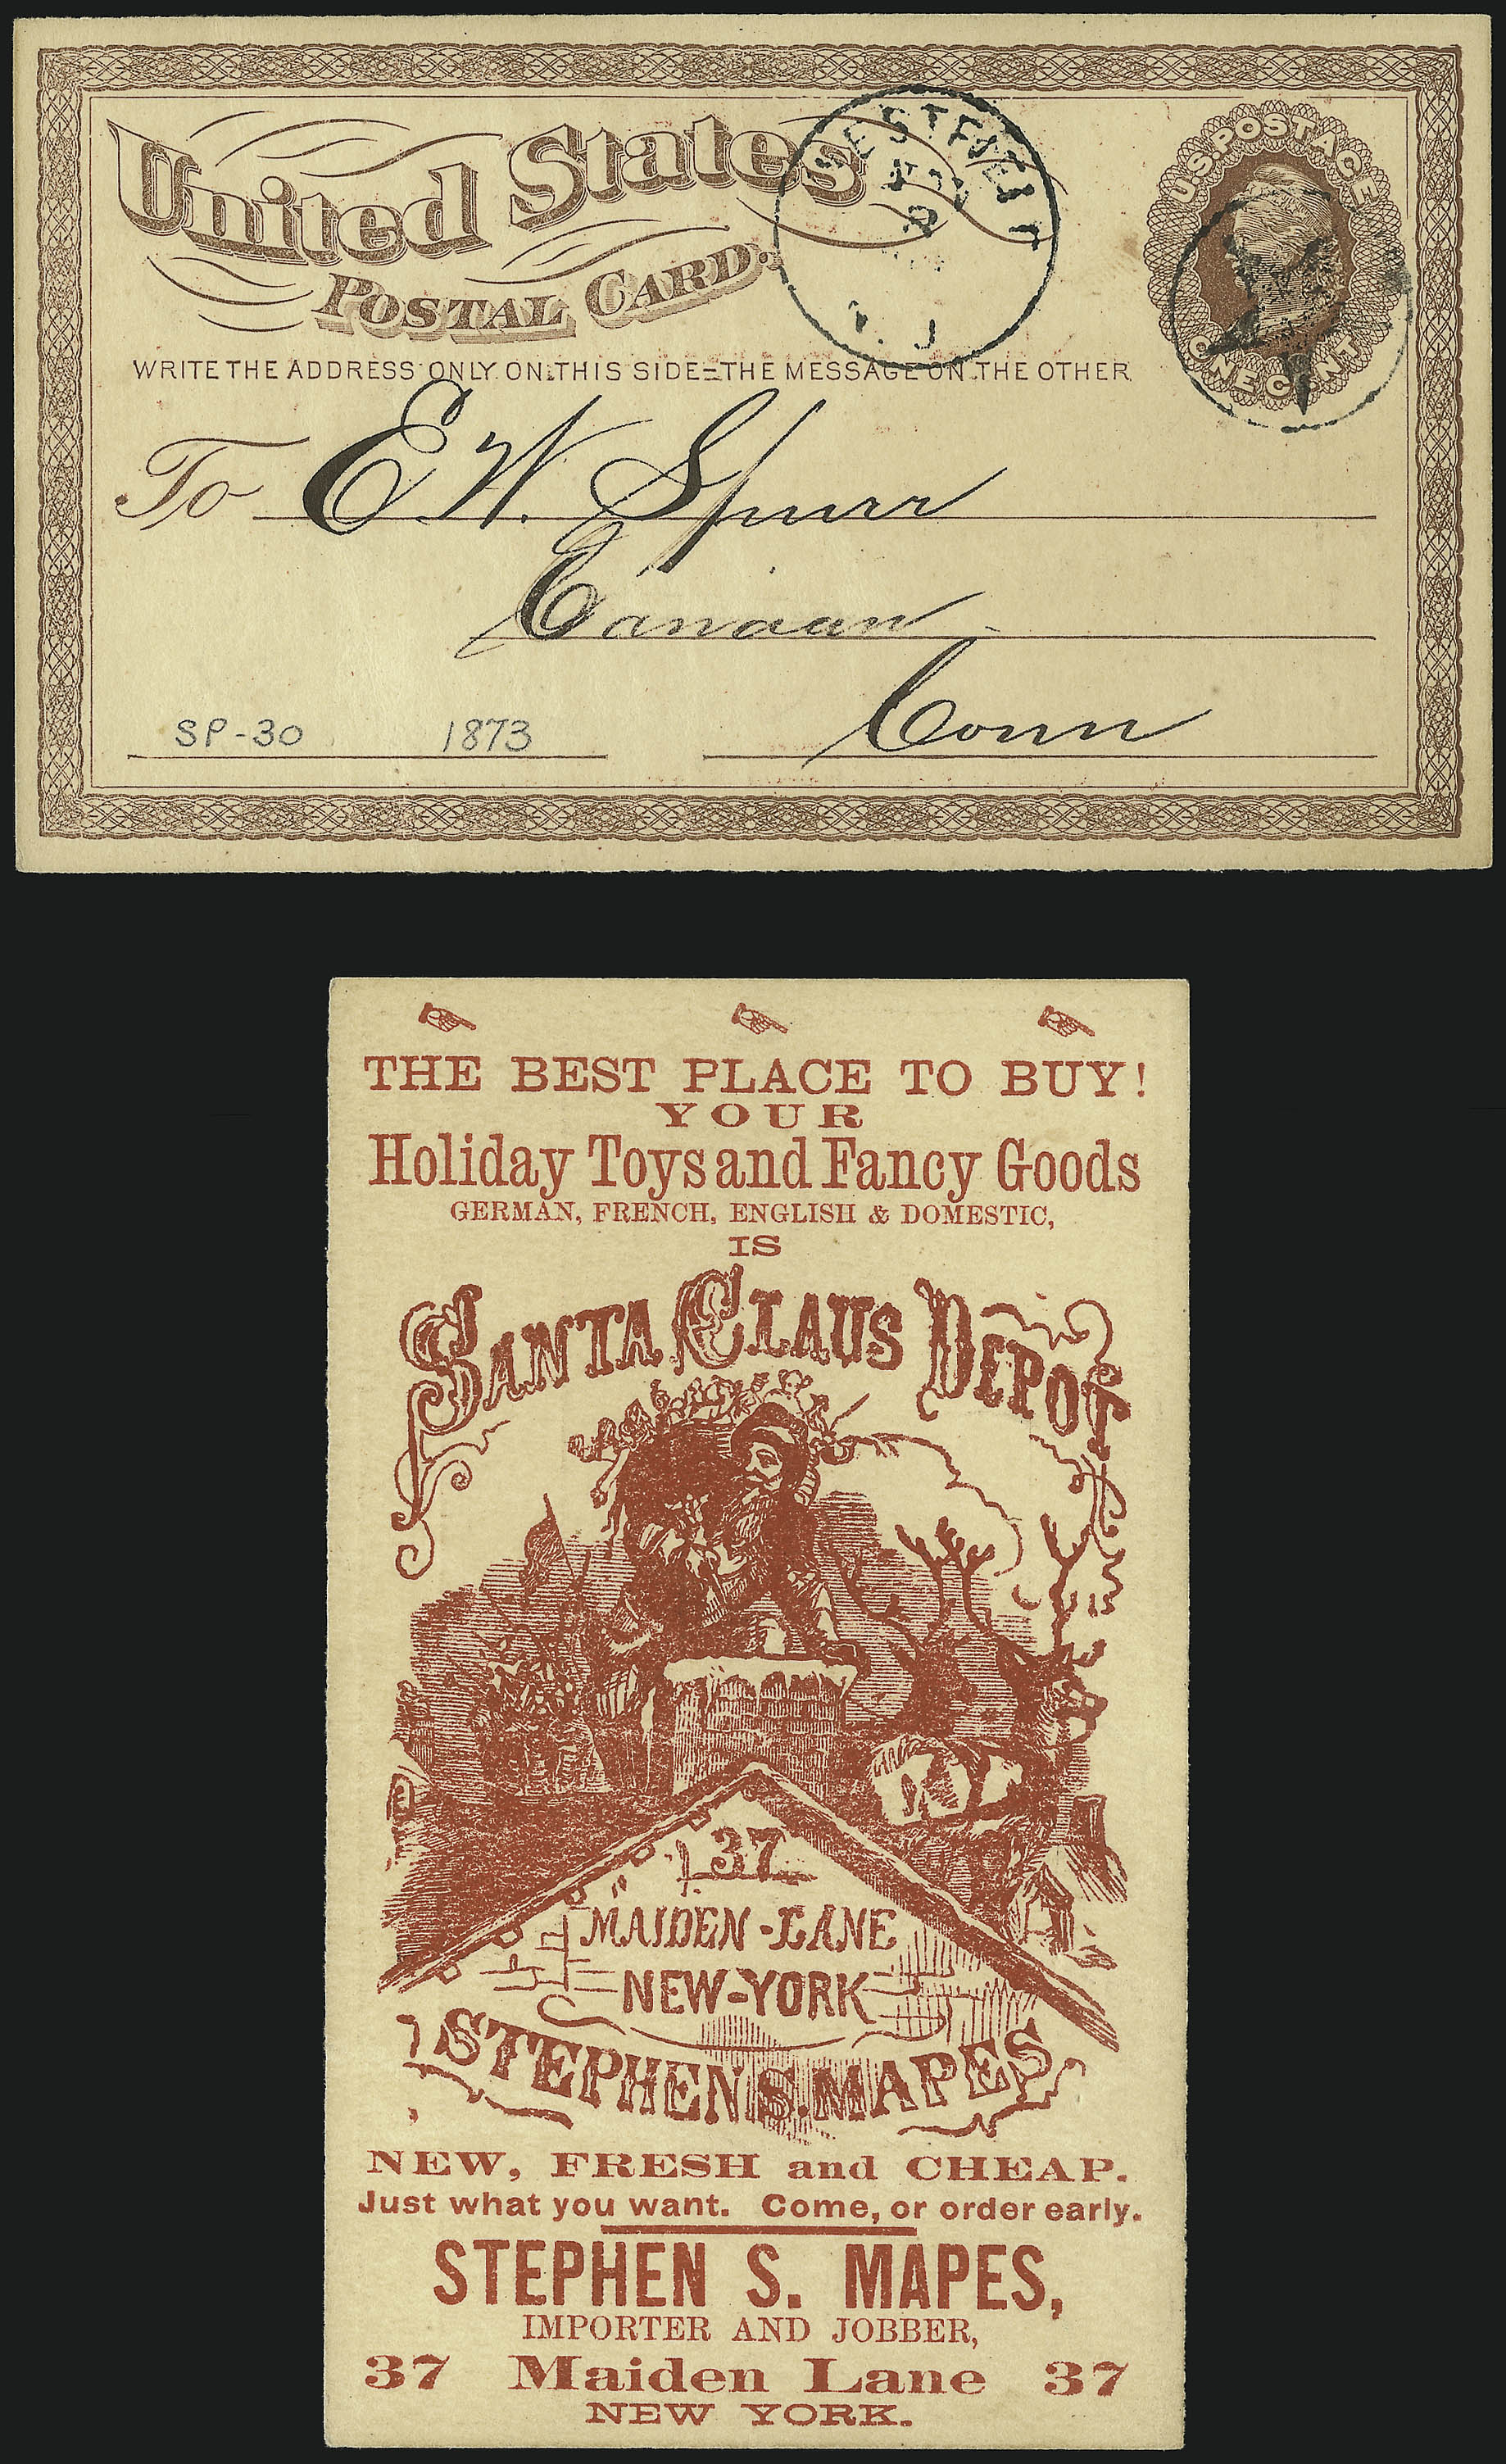 United States
POSTAL CARD.
U.S. POSTAGE
ONE CENT
WESTFIEL
N. J
WRITE THE ADDRESS ONLY ON THIS SIDE=THE MESSAGE ON THE OTHER
To E. W. Spurr
Canaan
Conn
SP-30 1873
THE BEST PLACE TO BUY!
YOUR
Holiday Toys and Fancy Goods
GERMAN, FRENCH, ENGLISH & DOMESTIC,
IS
SANTA CLAUS DEPOT
37
MAIDEN-LANE
NEW-YORK
STEPHEN S. MAPES
NEW, FRESH and CHEAP.
Just what you want. Come, or order early.
STEPHEN S. MAPES,
IMPORTER AND JOBBER,
37 Maiden Lane 37
NEW YORK.